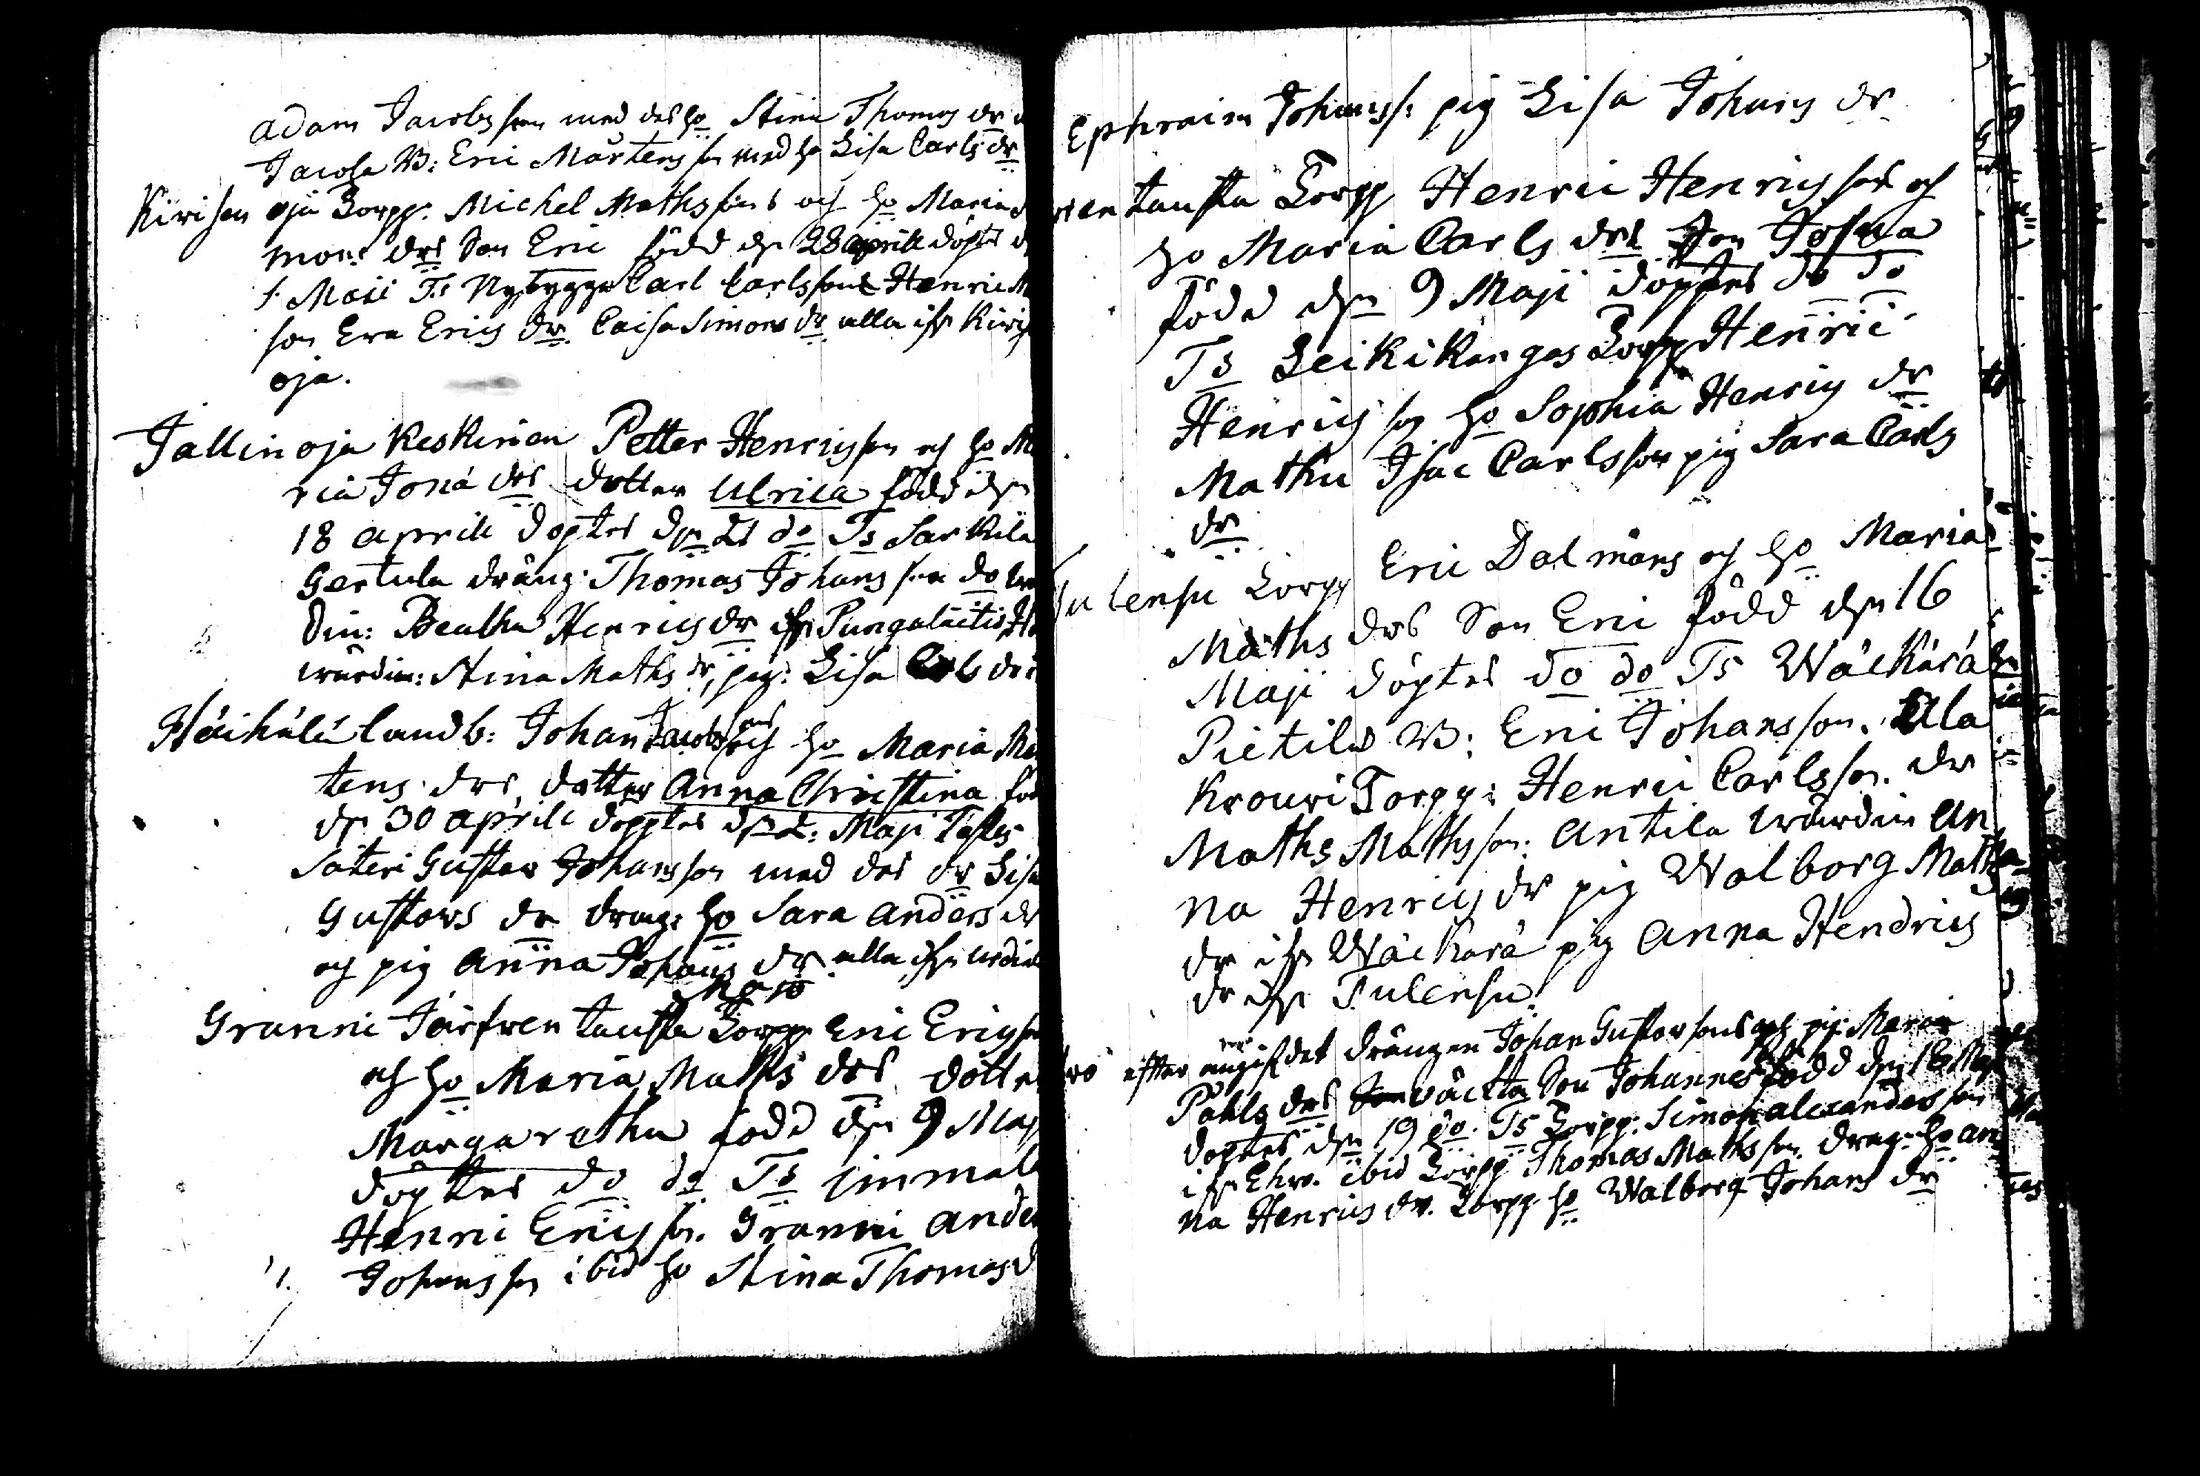 Adam Jacobsson med des ho Stina Thomas dr
Jacola B: Eric Mårtensson med ho Lisa Carls dr
Kirisen oja Torpp: Michel Mathssons och ho Maria
mons drs Son Eric född den 28 aprill döpt d
1 Maji Ts Nybygg Carl Carlssons Henric M
son Eva Erics dr. Caisa Simons dr alla ifr Kiris
oja.
Jallin oja Keskinen Petter Henricsson och ho Ma
ria Jona drs dotter Ulrica född den
18 aprill döptes den 21 do Ts Sarkila
Gertula dräng: Thomas Johansson do
din: Beatha Henrics dr ifr Pungalaitis
wärdin: Stina Maths dr, pig: Lisa Carls dr
Häihälä landb: Johan Jacobssons och ho Maria Mår
tens drs dotter Anna Christina föd
dn 30 aprill döptes dn 2: Maji Testes
Säteri Gustav Johansson med des dr Lisa
Gustavs dr dräng: ho Sara Anders dr
och pig Anna Johans dr alla ifr
Granni Järfven tausta Torpp Eric Ericsson
och ho Maria Maths drs dotter
Margaretha född den 9 Maj
döptes do do Ts immal
Henric Ericsson. Granni Ander
Johansson ibid ho Stina Thomas d
Ephraim Johanss: pig Lisa Johans dr
ventausta Torpp Henric Henricsson och
ho Maria Carls drs Son Josua
född den 9 Maji döptes do do
Ts Leikikangas Torpp Henric
Henricsson ho Sophia Henrics dr
Mathu Isac Carlsson pig Sara Carls
dr
Tulensu Torpp Eric Dalmans och ho Maria
Maths drs Son Eric född den 16
Maji döptes do do Ts Wäckärä
Pietilä B: Eric Johansson. Ala
Krouvi Torpp: Henric Carlsson. dr
Maths Mathsson: Antila wärdin An
na Henrics dr pig Walborg Maths
dr ifr Wäckärä pig Anna Hendrics
dr ifr Tulensu
efter angifvet drängen Johan Gustavsons och pig: Maria
Påhls drs oäckta Son Johannes född den 18 Maji
döptes den 19 do. Ts Torpp: Simon Alexandersson
ifr Ehro. ibid Torpp Thomas Mathsson. dräng: ho An
na Henrics dr. Torpp ho Walborg Johans dr